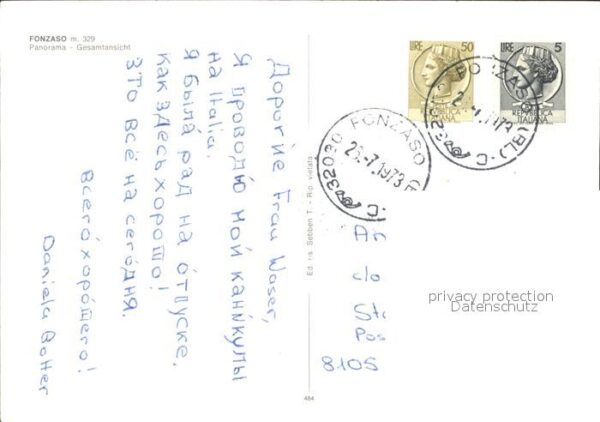 FONZASO m. 329
Panorama - Gesamtansicht
Дорогие Frau Waser,
Я проводю мой каникулы
на Italia.
Я была рад на отпуске.
Как здесь хорошо!
Это всё на сегодня.
Всего хорошего!
Daniela Botter
Ed. Sebben T. - Rip. vietata
484
LIRE 50
REPUBBLICA ITALIANA
LIRE 5
REPUBBLICA ITALIANA
32030 FONZASO
23.-7.1973
FONZASO (BL)
1973
An
c/o
St
Pos
8105
privacy protection
Datenschutz